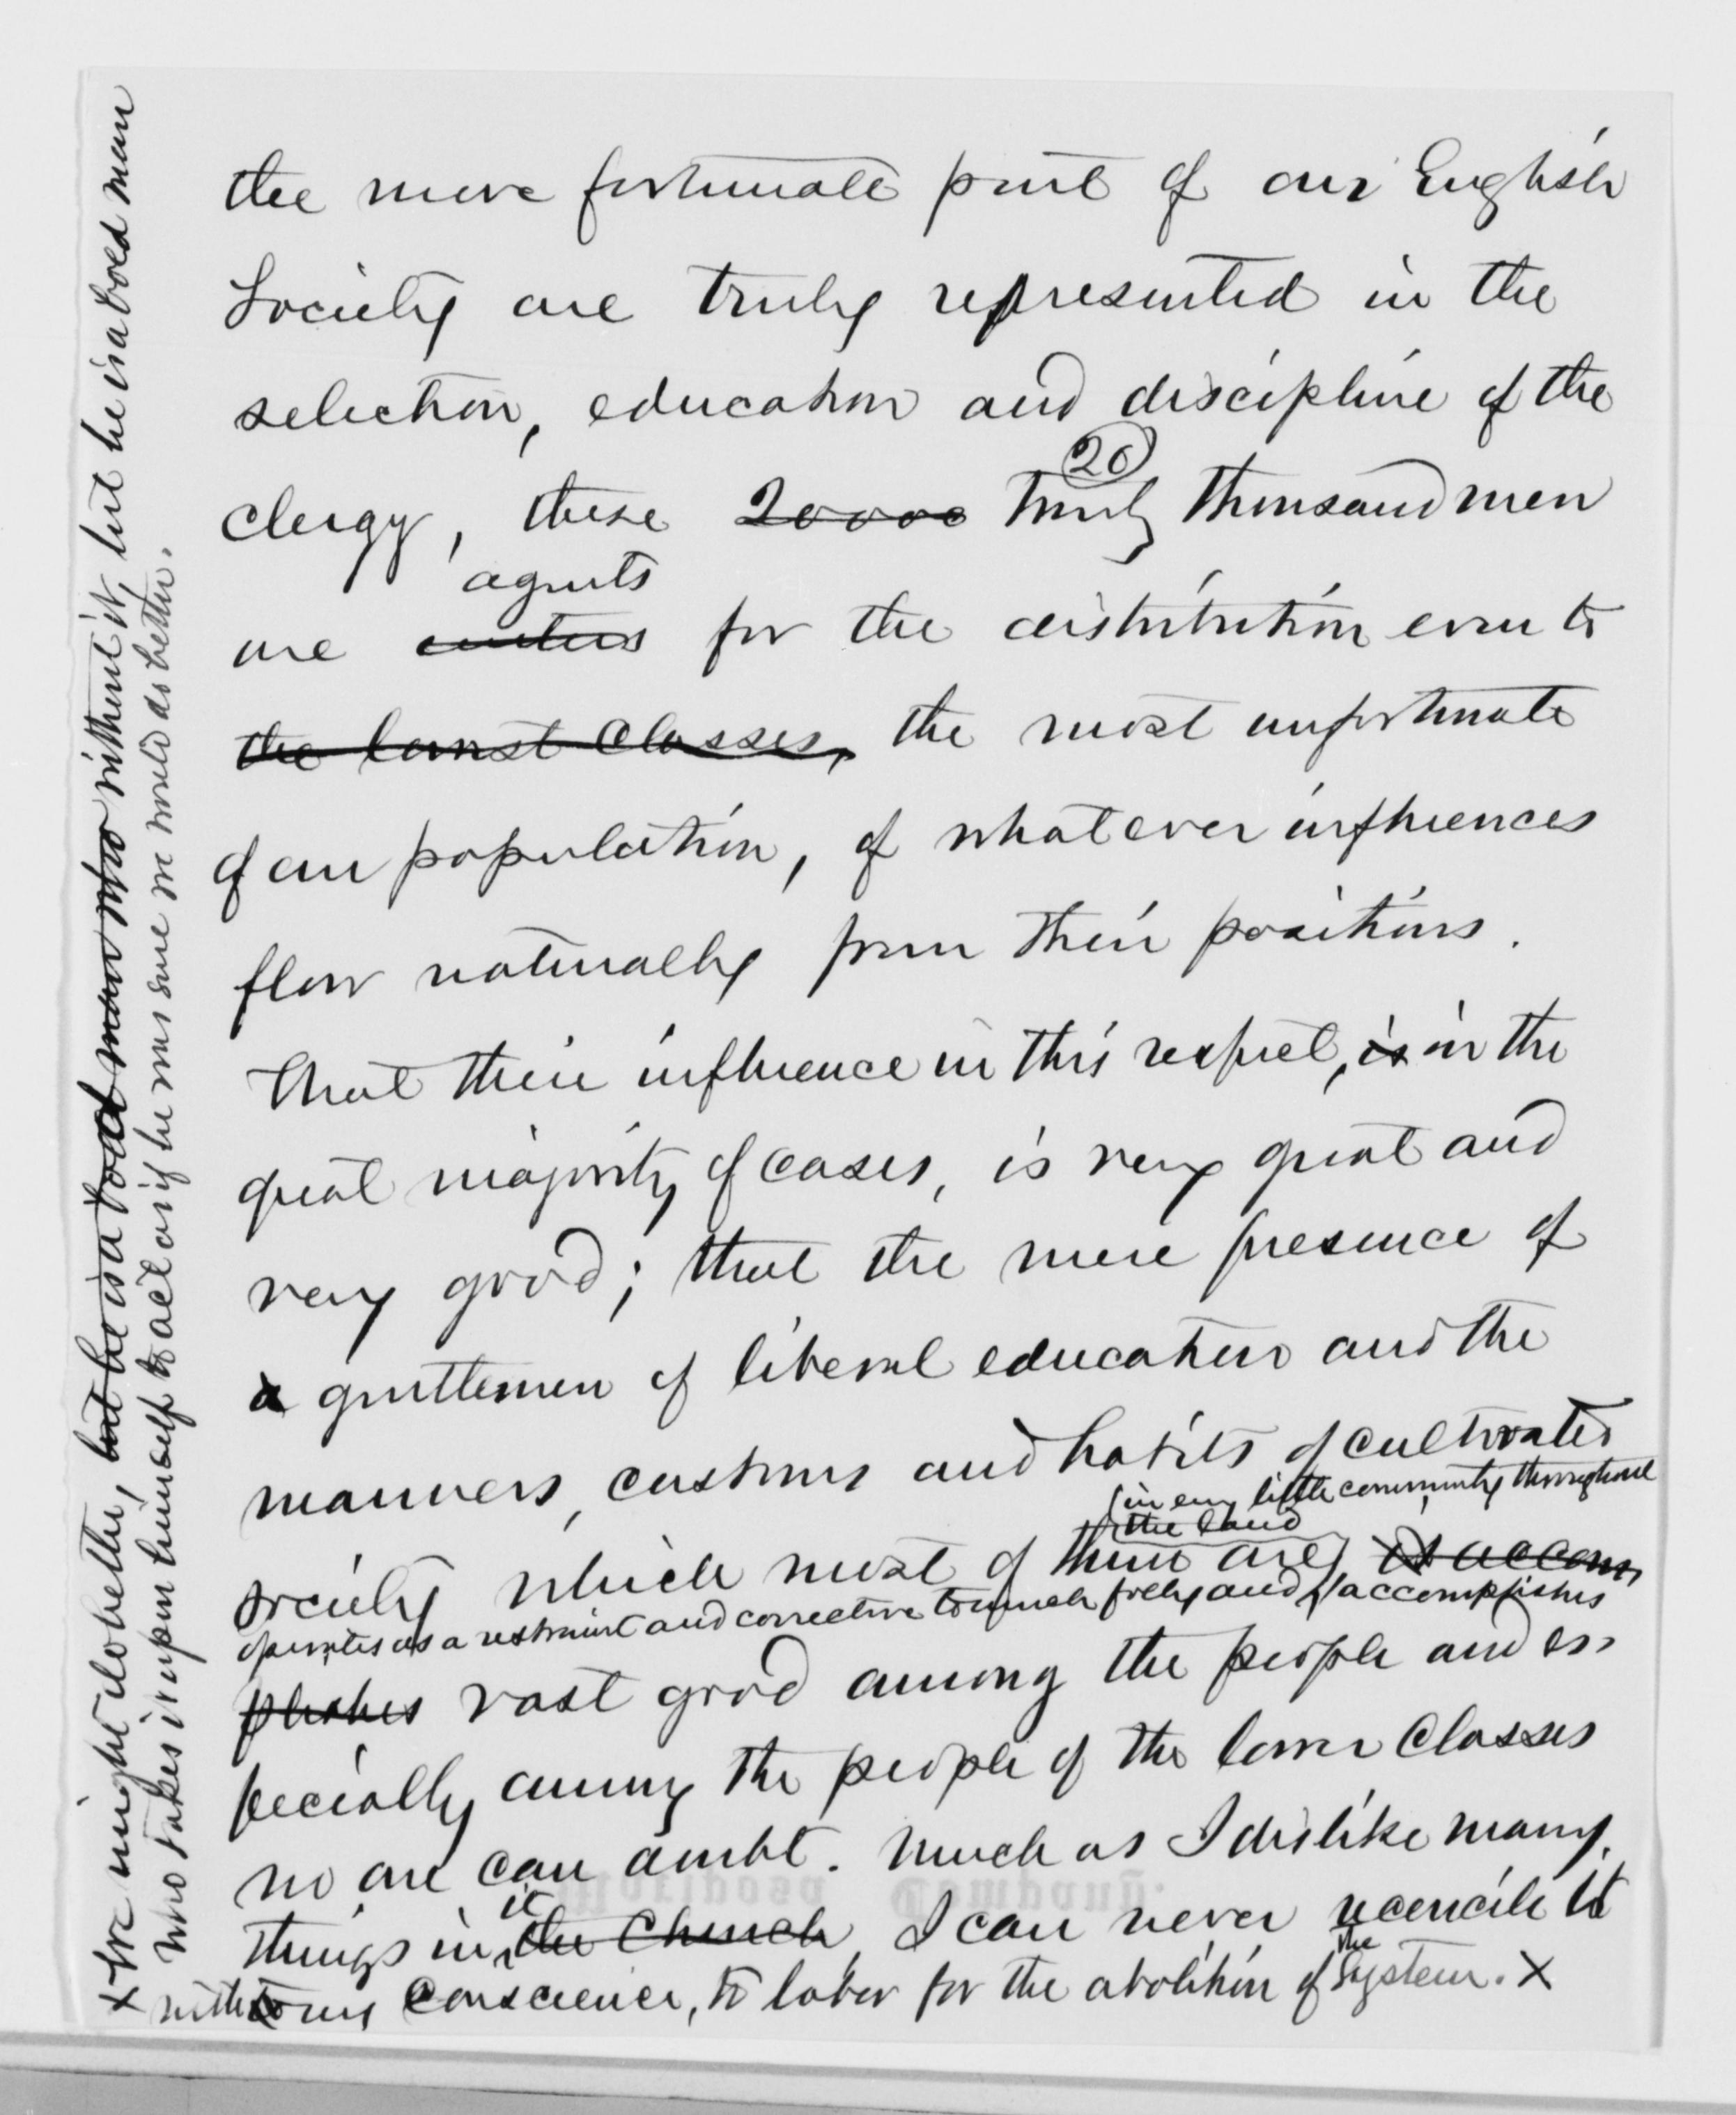 the more fortunate part of our English
Society are truly represented in the
selection, education and discipline of the
20
clergy, these 20000 twenty thousand men
agents
are centers for the distribution even to
the lowest classes, the most unfortunate
of our population, of whatever influences
flow naturally from their positions.
That their influence in this respect, is in the
great majority of cases, is very great and
very good; that the mere presence of
a gentlemen of liberal education and the
manners, customs and habits of cultivated
in every little community throughout
the land
society which most of them are is accom
operates as a restraint and corrective to much folly and accomplishes
plishes vast good among the people and es-
pecially among the people of the lower classes
no one can doubt. Much as I dislike many
it
things in the Church, I can never reconcile it
the
with to my conscience, to labor for the abolition of system. X
X We might do better, but he is a bold man who without it, but he is a bold man
who takes it upon himself to act as if he was sure we would do better.